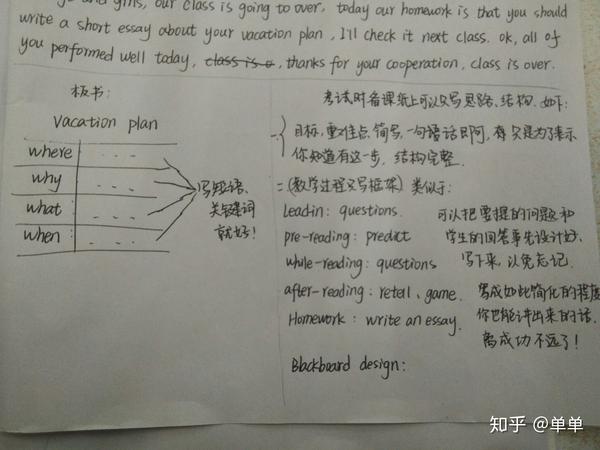 and girls, our class is going to over, today our homework is that you should
write a short essay about your vacation plan, I'll check it next class. ok, all of
you performed well today, class is o, thanks for your cooperation, class is over.
板书:
Vacation plan
where ...
why ...
what ...
when ...
写短语、
关键词
就好!
考试时备课纸上可以只写思路、结构. 如下:
一 目标,重难点,简写,一句话即可,存只是为了表示
你知道有这一步. 结构完整.
二 (教学过程只写框架) 类似于:
Leadin: questions.
pre-reading: predict
while-reading: questions
after-reading: retell, game.
Homework: write an essay.
可以把要提的问题和
学生的回答事先设计好,
写下来,以免忘记.
写成如此简化的程度
你也能讲出来的话.
离成功不远了!
Blackboard design:
知乎 @单单